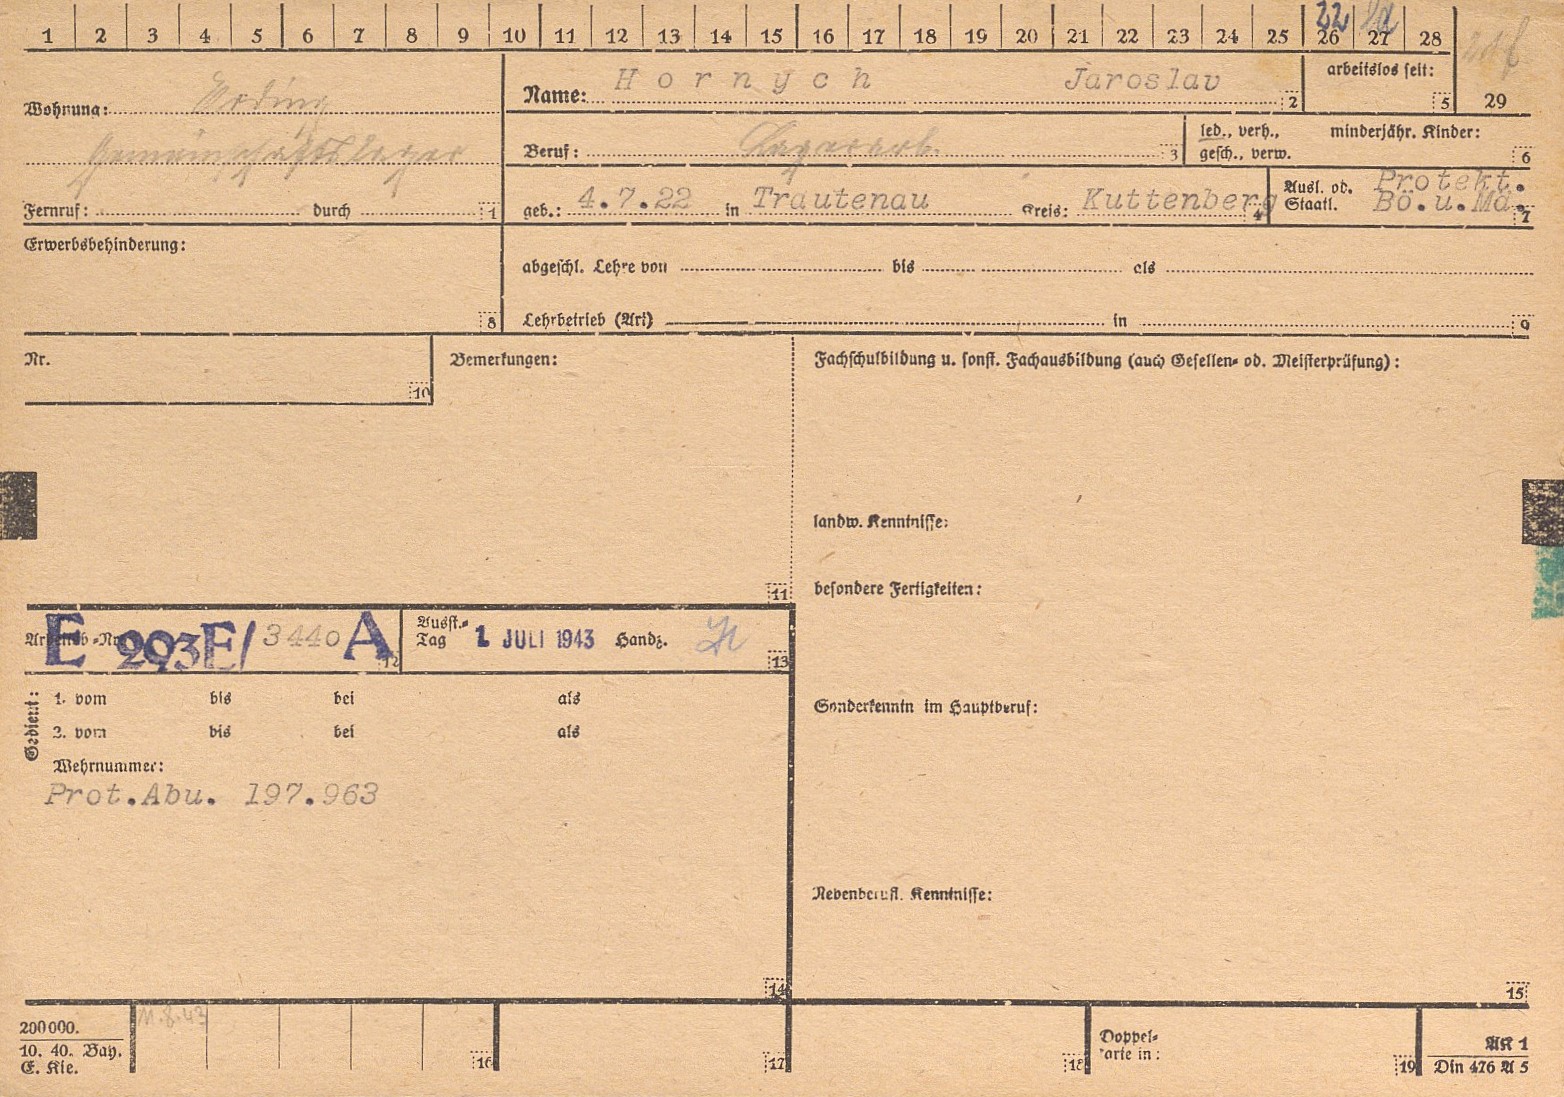 1 2 3 4 5 6 7 8 9 10 11 12 13 14 15 16 17 18 19 20 21 22 23 24 25 26 27 28 29
22
Wohnung: Erding
Gemeinschaftslager
Fernruf: durch 1
Name: Hornych Jaroslav 2
arbeitslos seit: 5
Beruf: Lagerarb. 3
led., verh., minderjähr. Kinder:
gesch., verw. 6
geb.: 4.7.22 in Trautenau Kreis: Kuttenberg 4
Ausl. od. Protekt.
Staatl. Bö.u.Mä. 7
Erwerbsbehinderung: 8
abgeschl. Lehre von bis als
Lehrbetrieb (Art) in 9
Nr. 10
Bemerkungen: 11
Fachschulbildung u. sonst. Fachausbildung (auch Gesellen- od. Meisterprüfung):
landw. Kenntnisse:
besondere Fertigkeiten:
Sonderkenntn im Hauptberuf:
Nebenberufl. Kenntnisse:
15
Arbeitsb.-Nr. E 293E/ 3440 A 12
Ausst.-
Tag 1. JULI 1943 Handz. 13
Gedient:
1. vom bis bei als
2. vom bis bei als
Wehrnummer:
Prot.Abu. 197.963
14
200000.
10. 40. Bay.
E. Kle.
11.8.43
16 17 18
Doppel-
karte in: 19
AK 1
Din 476 A 5